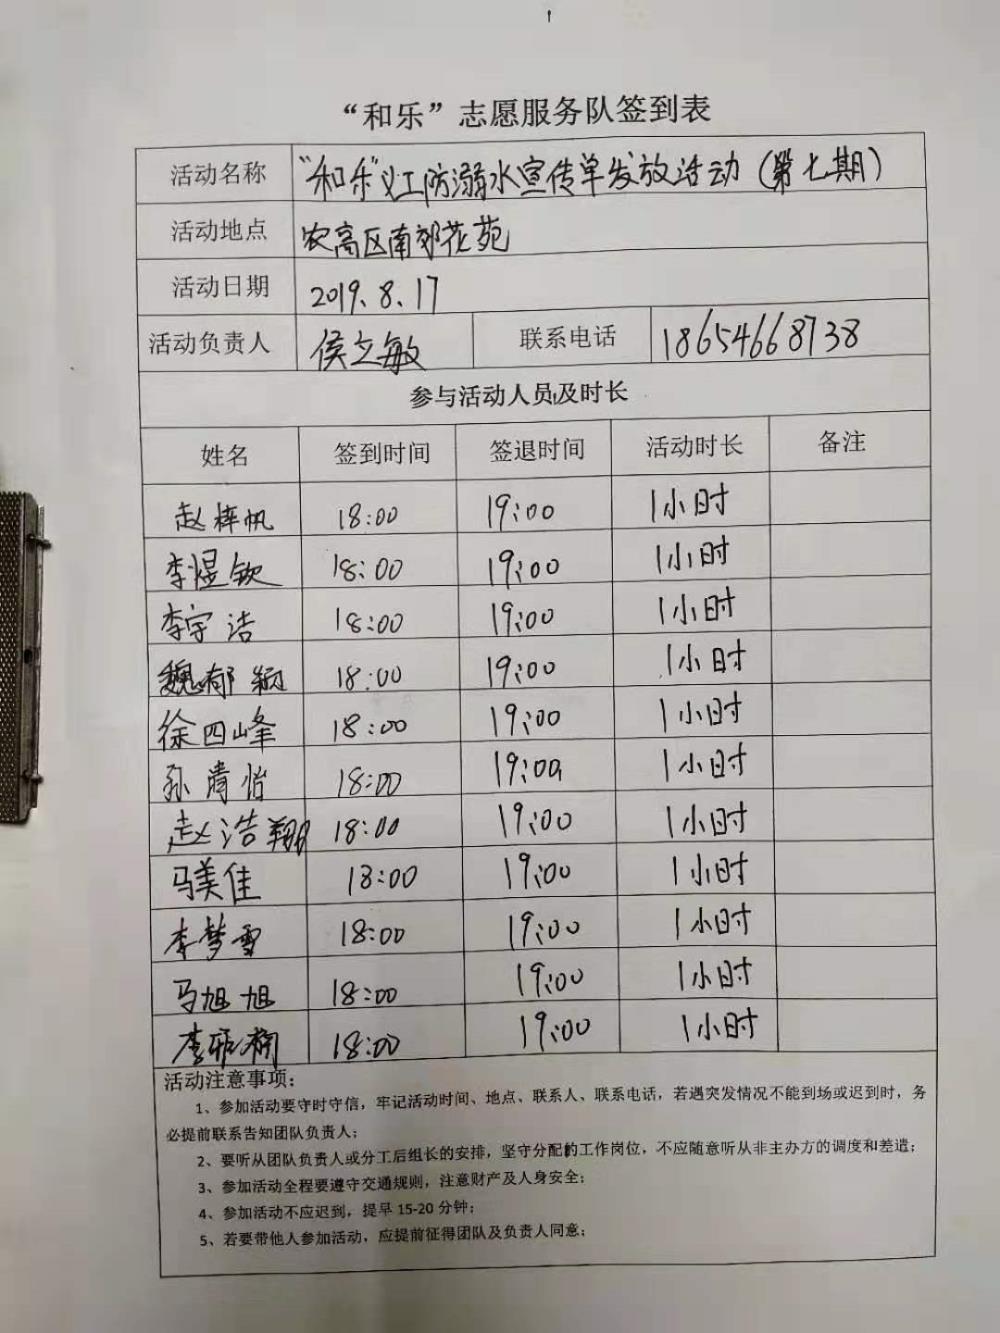 “和乐”志愿服务队签到表
活动名称 “和乐”义工防溺水宣传单发放活动（第七期）
活动地点 农高区南郊花苑
活动日期 2019.8.17
活动负责人 侯立敏 联系电话 18654668738
参与活动人员及时长
姓名 签到时间 签退时间 活动时长 备注
赵梓帆 18:00 19:00 1小时
李煜钦 18:00 19:00 1小时
李宇洁 18:00 19:00 1小时
魏郁颖 18:00 19:00 1小时
徐四峰 18:00 19:00 1小时
孙清怡 18:00 19:00 1小时
赵浩翔 18:00 19:00 1小时
马美佳 18:00 19:00 1小时
李梦雪 18:00 19:00 1小时
马旭旭 18:00 19:00 1小时
李 18:00 19:00 1小时
活动注意事项：
1、参加活动要守时守信，牢记活动时间、地点、联系人、联系电话，若遇突发情况不能到场或迟到时，务
必提前联系告知团队负责人；
2、要听从团队负责人或分工后组长的安排，坚守分配的工作岗位，不应随意听从非主办方的调度和差遣；
3、参加活动全程要遵守交通规则，注意财产及人身安全；
4、参加活动不应迟到，提早 15-20 分钟；
5、若要带他人参加活动，应提前征得团队及负责人同意；